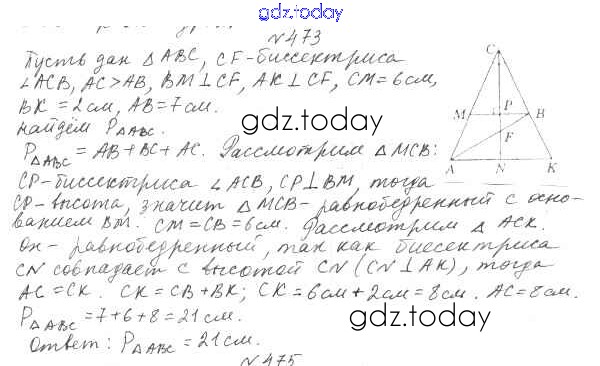 gdz.today
№473
Пусть дан △ABC, CF-биссектриса
∠ACB, AC>AB, BM⊥CF, AK⊥CF, CM=6см,
BK=2см, AB=7см.
Найдём P△ABC.
P△ABC=AB+BC+AC. Рассмотрим △MCB:
CP-биссектриса ∠ACB, CP⊥BM, тогда
CP-высота, значит △MCB-равнобедренный с осно-
ванием BM. CM=CB=6см. Рассмотрим △ ACK.
Он-равнобедренный, так как биссектриса
CN совпадает с высотой CN (CN⊥AK), тогда
AC=CK. CK=CB+BK; CK=6см+2см=8см. AC=8см.
P△ABC=7+6+8=21см.
Ответ: P△ABC=21см.
№475
C
M P B
F
A N K
gdz.today
gdz.today